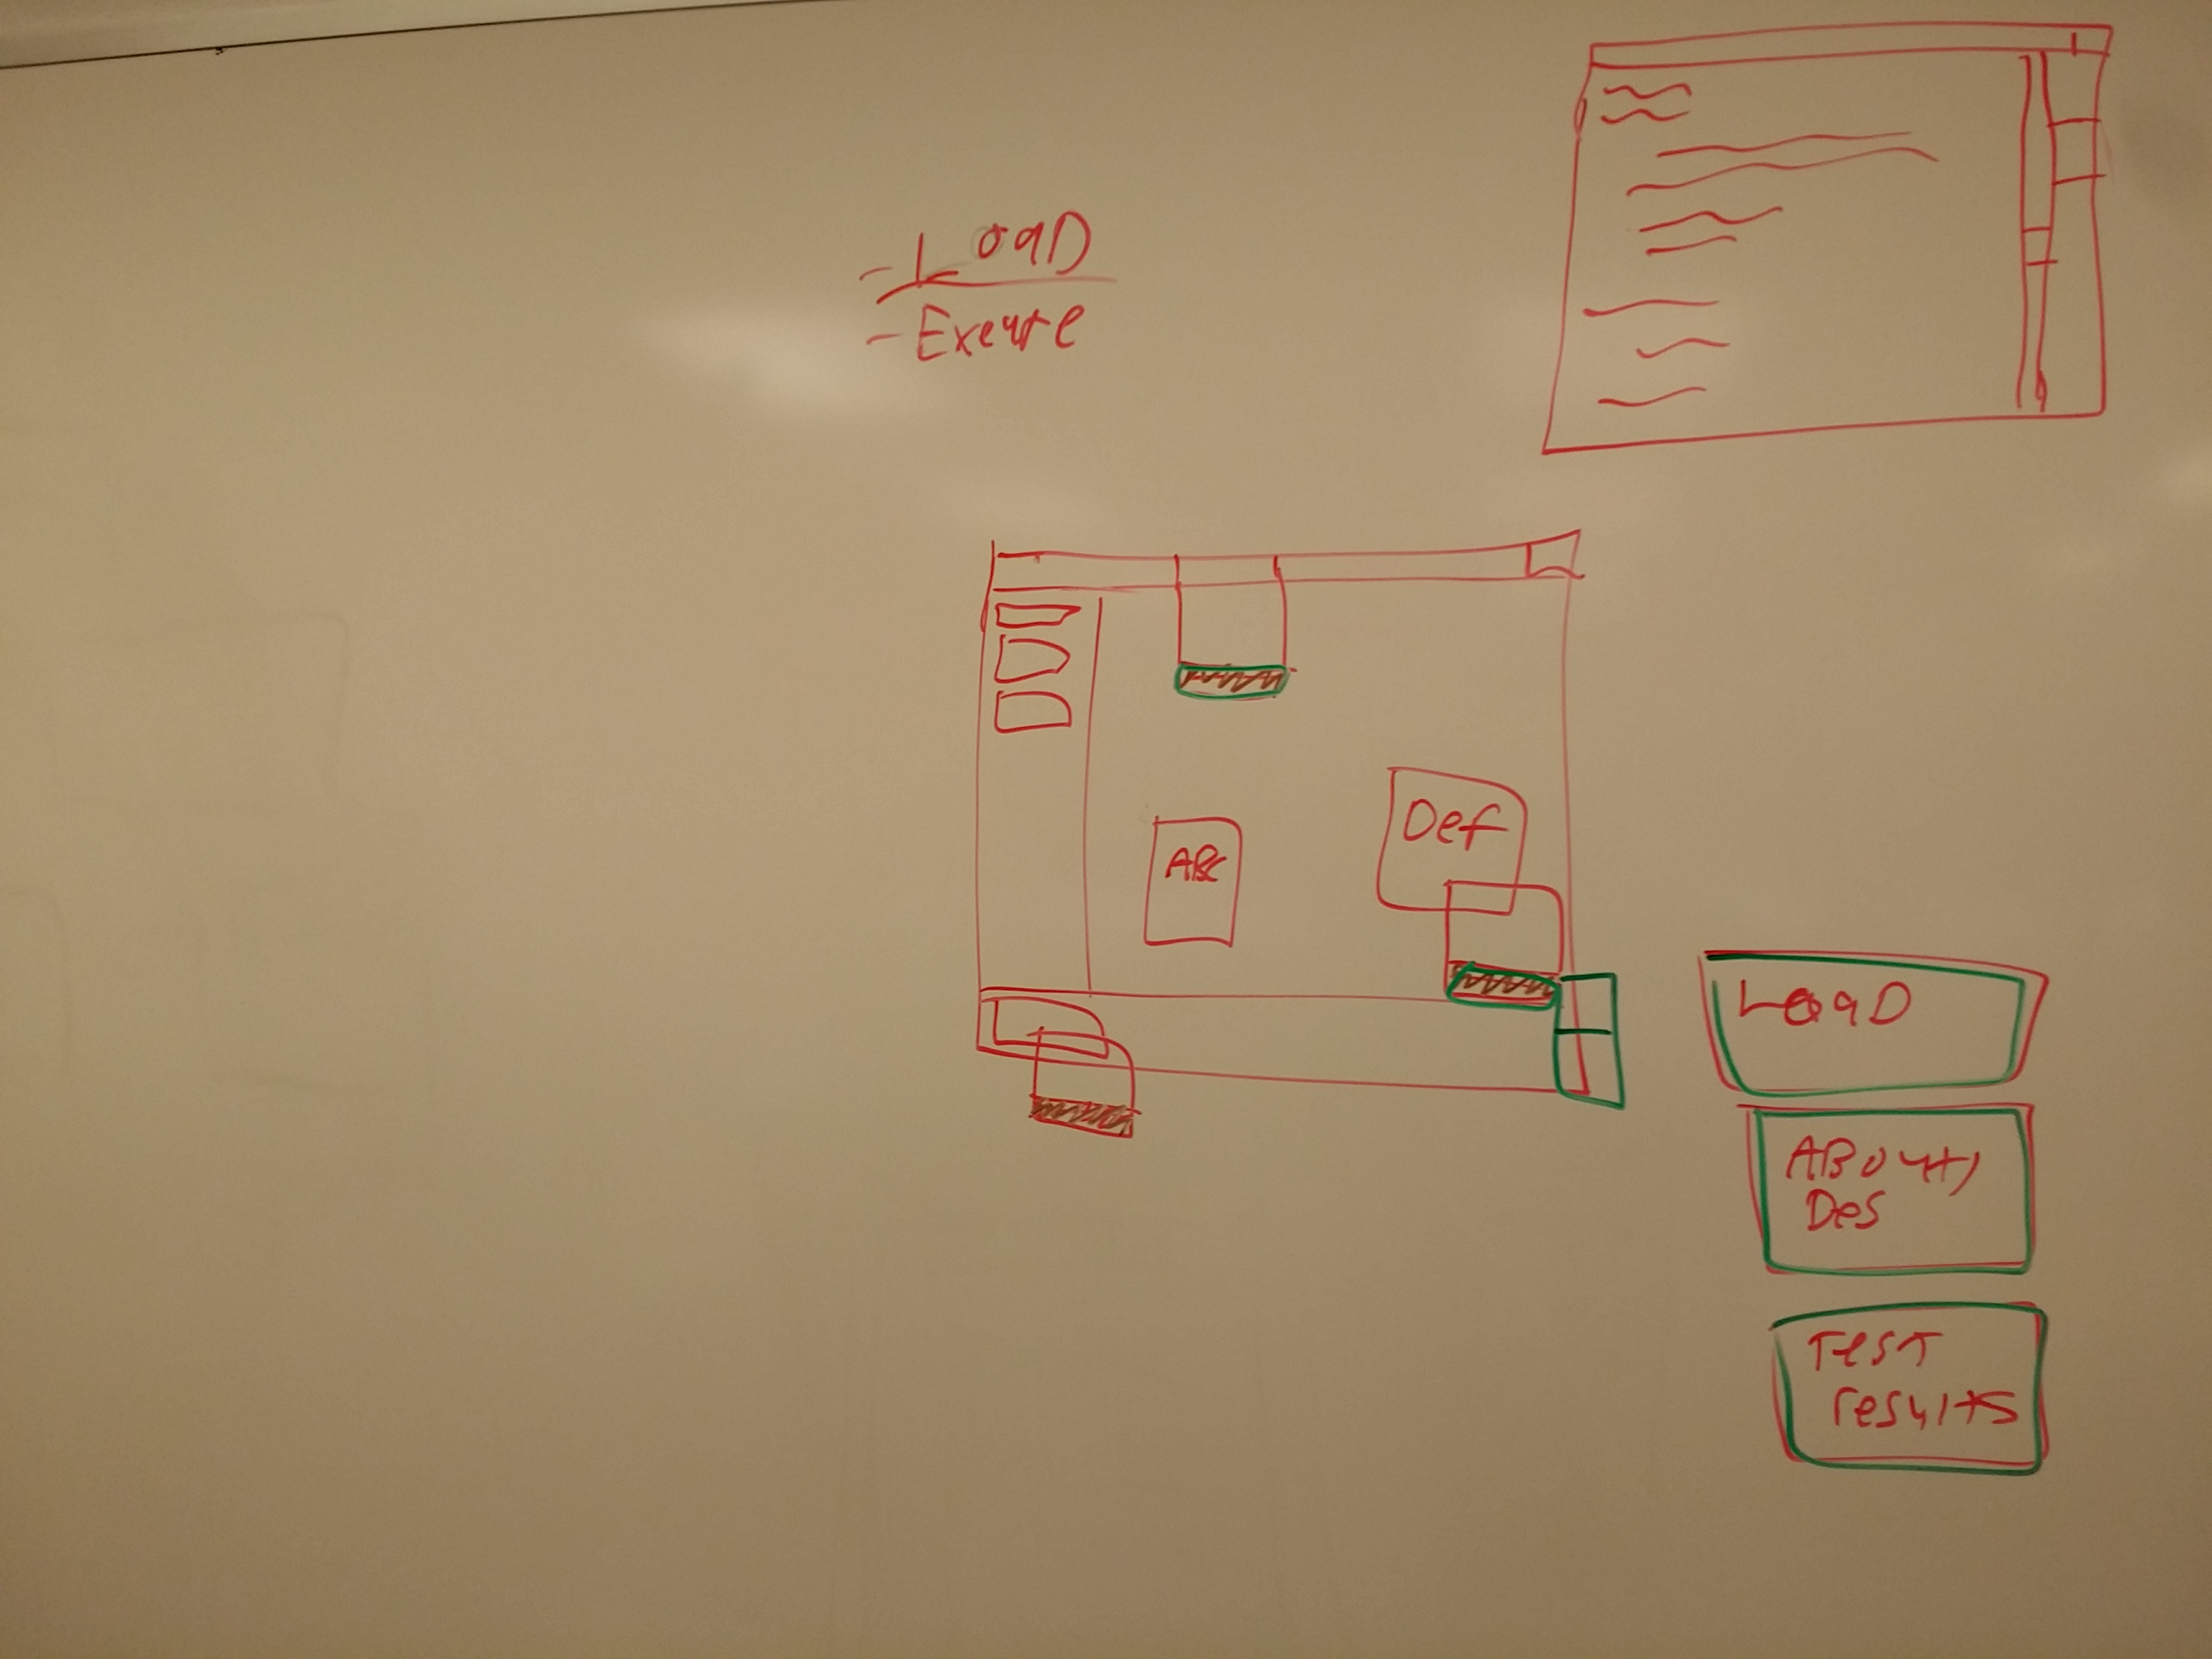 - LoaD
- Execute
ABC
Def
LoaD
ABout/
Des
Test
results